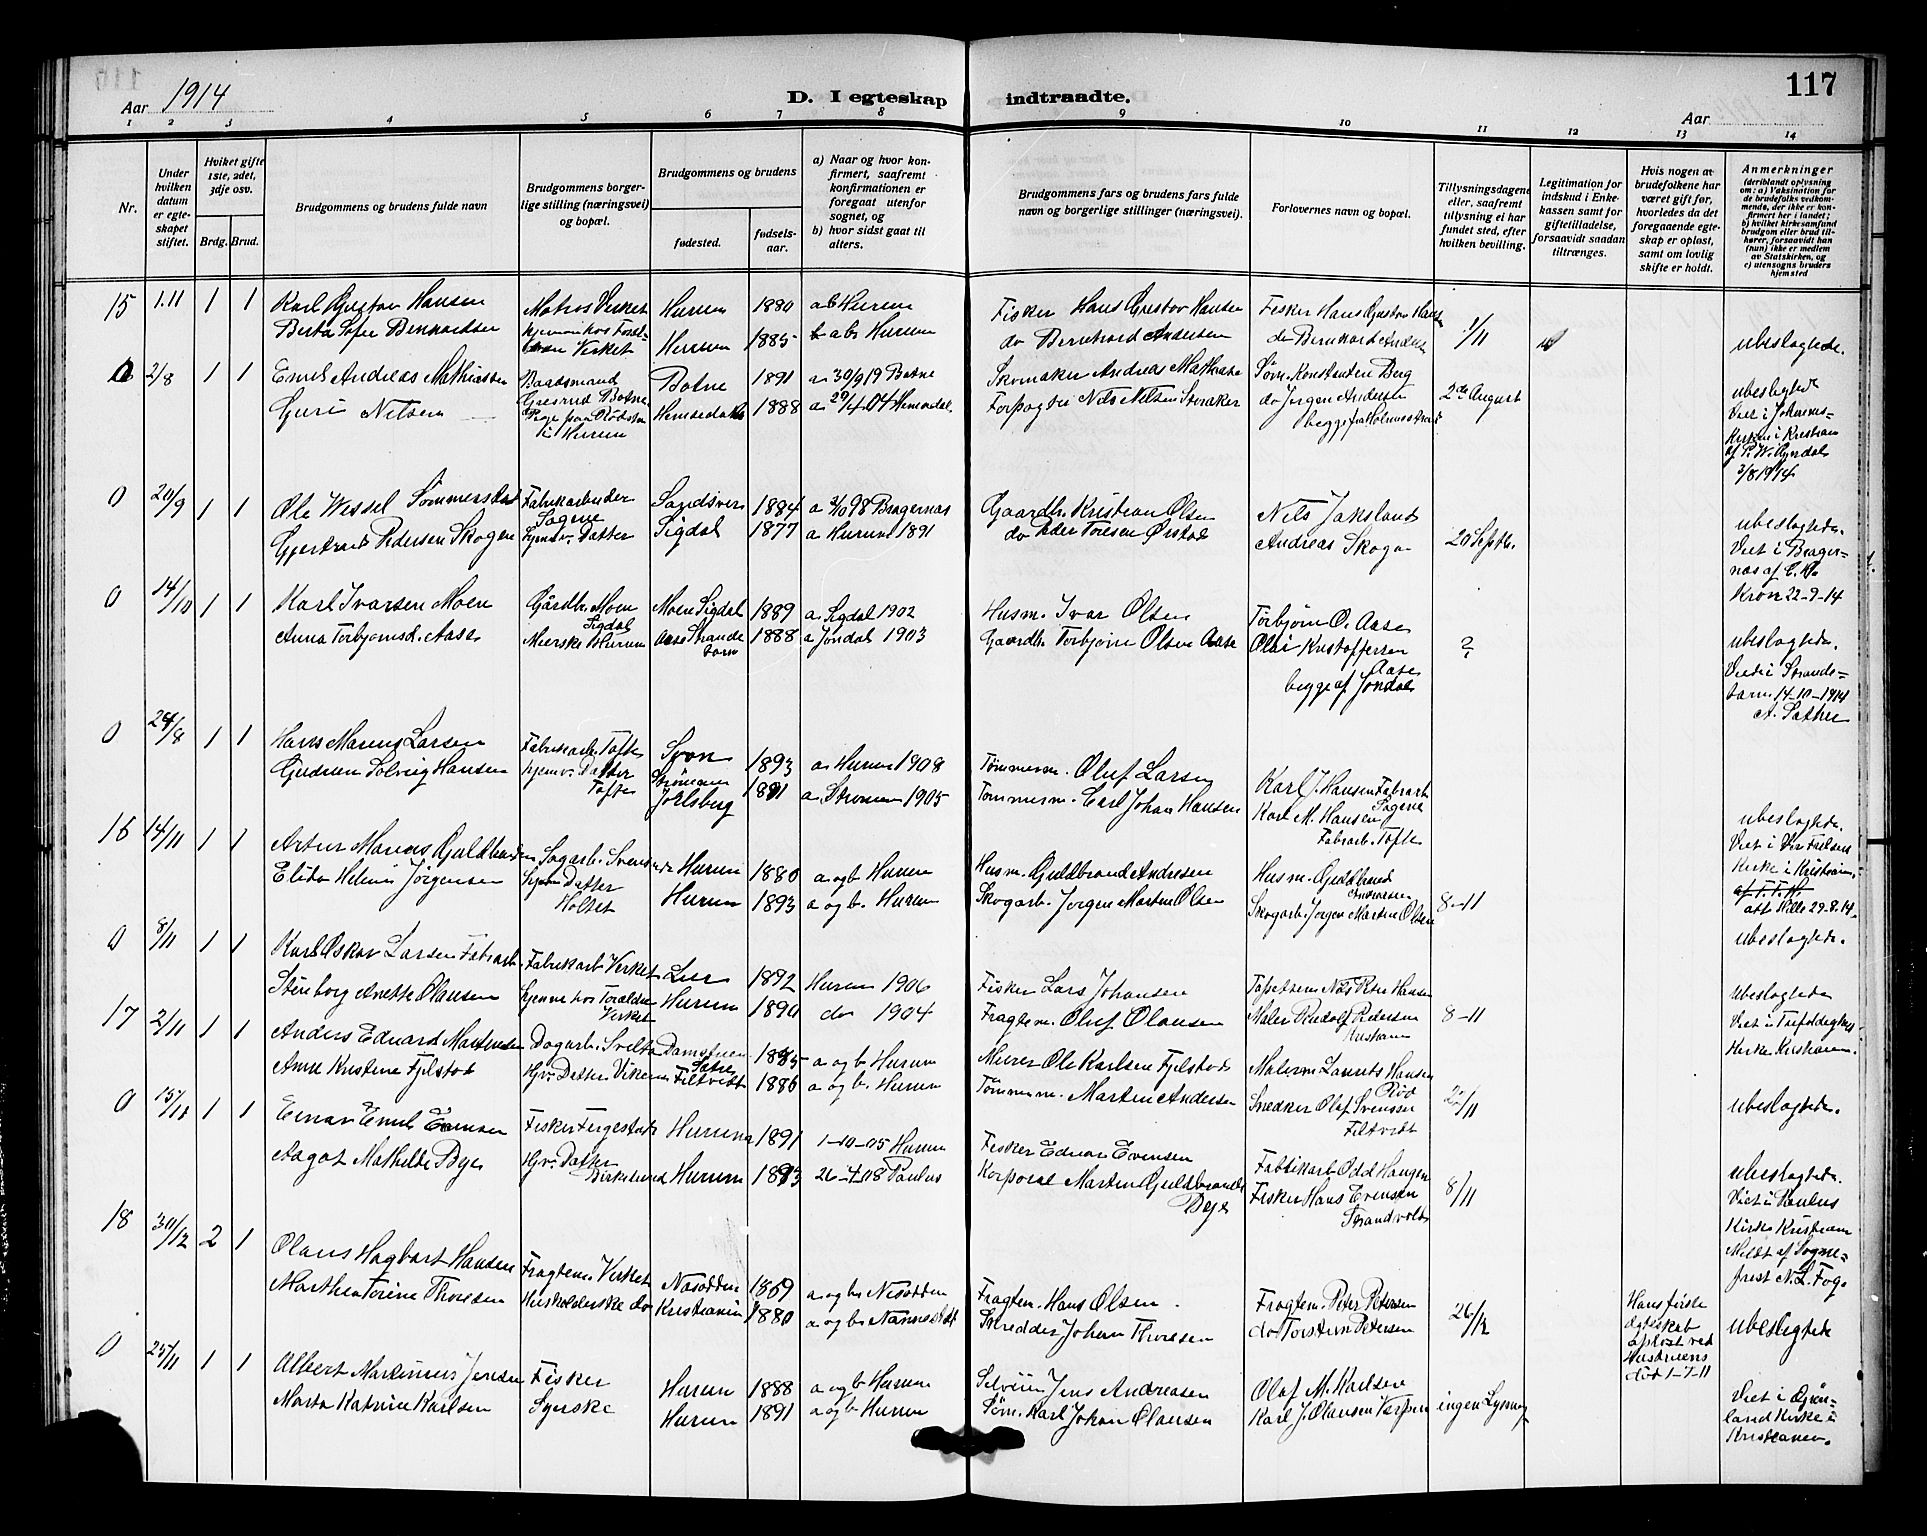 117
Aar 1914
D. I egteskap indtraadte.
Aar
1 2 3 4 5 6 7 8 9 10 11 12 13 14
Nr.
Under hvilken datum er egteskapet stiftet.
Hviket gifte 1ste, 2det, 3dje osv.
Brdg. Brud.
Brudgommens og brudens fulde navn
Brudgommens borgerlige stilling (næringsvei) og bopæl.
Brudgommens og brudens
fødested.
fødselsaar.
a) Naar og hvor konfirmert, saafremt konfirmationen er foregaat utenfor sognet, og
b) hvor sidst gaat til alters.
Brudgommens fars og brudens fars fulde navn og borgerlige stillinger (næringsvei).
Forlovernes navn og bopæl.
Tillysningsdagene eller, saafremt tillysning ei har fundet sted, efter hvilken bevilling.
Legitimation for indskud i Enkekassen samt for giftetilladelse, forsaavidt saadan tiltrænges.
Hvis nogen av brudefolkene har været gift før, hvorledes da det foregaaende egteskap er opløst, samt om lovlig skifte er holdt.
Anmerkninger (deriblandt oplysning om: a) Vaksination for de brudefolks vedkommende, der ikke er konfirmert her i landet; b) hvilket kirkesamfund brudgom eller brud tilhører, forsaavidt han (hun) ikke er medlem av Statskirken, og c) utensogns bruders hjemsted
15 1.11 1 1 Karl Gustav Hansen Matros Virket Hurum 1880 a b Hurum Fisker Hans Gustav Hansen Fisker Hans Gustav Hansen 1/11
Berta Sofie Hurum 1885 a b Hurum do Bernhard Andersen do Bernhard Andersen ubeslagtede.
0 2/8 1 1 Emil Andreas Mathiassen Baadsmand Botne 1891 a 30/9 19 Botne Skomaker Andreas Mathias Konstantin Berg 2de August
Guri Nilsen Hemsedal 1888 a 29/4 04 Hemsedal Nils Nilsen do Jørgen Andersen ubeslagtede
i Hurum begge fra Holmestrand Viet i Johannes=
Kirken i Kristiania
3/8 1914
0 20/9 1 1 Ole Wessel Fabrikarbeider Sandsver 1884 a 98 Bragernæs Gaardb. Kristian Olsen Nils Jaksland 20 Septb.
Pedersen Skogen Datter Sigdal 1877 a Hurum 1891 do Peder Toresen Ørstad Andreas Skogen ubeslagtede.
Viet i Bragernæs af
Kron 22-9-14
0 14/10 1 1 Karl Ivarsen Moen Gårdbr. Moen Sigdal Moen Sigdal 1889 a Sigdal 1902 Husm. Ivar Olsen Torbjørn O. Aase ?
Anna Torbjørnsd. Aase Meierske Hurum Aase Strandebarm 1888 a Jondal 1903 Gaardb. Torbjørn Olsen Aase Olai Kristoffersen Aase ubeslagtede.
begge af Jondal Viet i Strandebarm 14-10-1914
A. Sather
0 29/8 1 1 Hans Marius Larsen Fabrikarb. Tofte 1893 a. Hurum 1908 Tømmerm. Oluf Larsen Karl J. Hansen Fabrarb Sagene
Gudrun Solveig Hansen hjemv. Datter Tofte Strømmen Jarlsberg 1891 a. Strømm 1905 Tømmerm. Carl Johan Hansen Karl M. Hansen Fabrarb. Tofte ubeslagtede.
Kirke i Kristiania.
29.8.14.
16 14/11 1 1 Artur Marius Guldbrandsen Sagarb. Hurum 1880 a og b Hurum Husm. Guldbrand Andresen Husm. Guldbrand Andresen 8-11
Elida Helmine Jørgensen hjemv. Datter Holtet Hurum 1893 a og b. Hurum Skogarb. Jørgen Martin Olsen Skogarb. Jørgen Martin Olsen ubeslagtede.
0 8/11 1 1 Karl Oskar Larsen Fabrarb. Fabrikarb Virket Lier 1892 Hurum 1906 Fisker Lars Johansen Nils Peter Hansen 8-11
Anette Olausen hjemme hos Forældre Virket Hurum 1890 do 1904 Fragtem. Oluf Olausen Maler Rudolf Pedersen ubeslagtede
Viet i Trefoldighets
Kirke Kristiania.
17 2/11 1 1 Anders Eduard Martinsen Dagarb. Svelta Damstuen 1885 a og b Hurum Murer Ole Karlsen Fjelstad Malerm Laurits Hansen Rød 2/11
Anne Kristine Fjelstad Hjv. Datter Filtvedt 1886 a og b. Hurum Tømmerm. Martin Andersen Snedker Olaf Svensen Filtvedt ubeslagtede.
0 15/11 1 1 Einar Emil Evensen Fisker Hurum 1891 1-10-05 Hurum Fisker Edvar Evensen Fabrikarb Odd Haugen 8/11
Aagot Mathilde Bye Hjv. Datter Hurum 1893 26-4-08 Paulus Korporal Martin Guldbrandsen Bye Fisker Hans Evensen ubeslagtede.
Viet i Paulus
Kirke Kristiania
prest N. L. Fog.
18 30/12 2 1 Olaus Hagbart Hansen Fragtem. Virket Nesodden 1869 a og b Nesodden Fragtem. Hans Olsen Fragtem. Peter Petersen 26/12 Hans første egteskab opløst ved Hustruens død 1-7-11
Marthea Torine Thoresen Husholderske do Kristiania 1880 a og b Nannestad Skredder Johan Thoresen do Torstein Petersen ubeslegtede
0 25/11 1 1 Albert Marinius Jensen Fisker Hurum 1888 a og b Hurum Selveier Jens Andreasen Olaf M. Karlsen ingen Lysning
Marta Katrine Karlsen Syerske Hurum 1891 a og b Hurum Søm. Karl Johan Olausen Karl J. Olausen Viet i Grønland Kirke i
Kristiania.